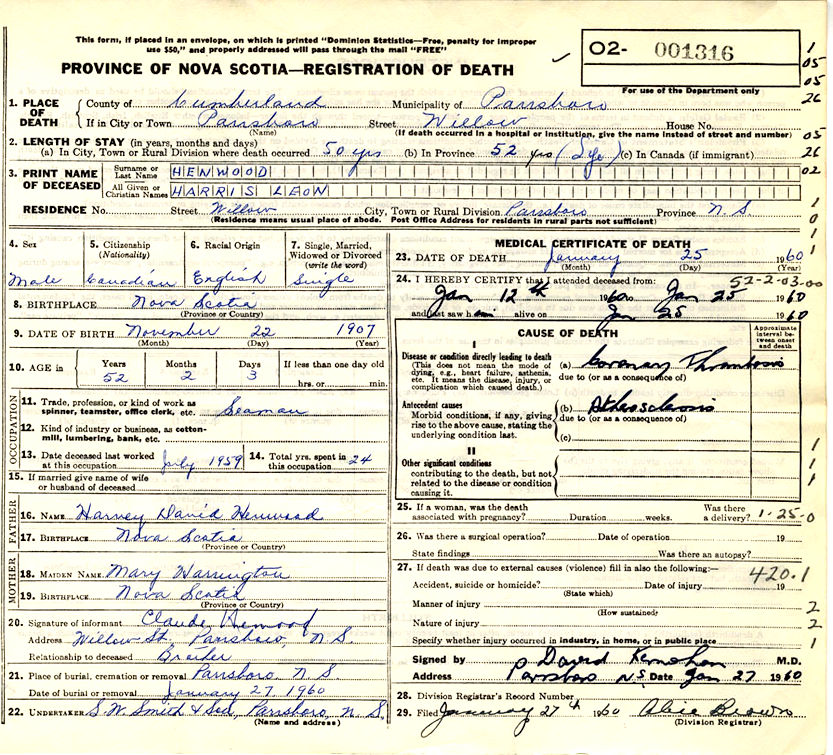 This form, if placed in an envelope, on which is printed "Dominion Statistics—Free, penalty for improper
use $50," and properly addressed will pass through the mail "FREE"
O2- 001316
PROVINCE OF NOVA SCOTIA—REGISTRATION OF DEATH
For use of the Department only
1
05
05
26
05
26
02
1
0
1
1. PLACE OF DEATH
County of Cumberland Municipality of Parrsboro
If in City or Town Parrsboro Street Willow House No.
(Name) (If death occurred in a hospital or institution, give the name instead of street and number)
2. LENGTH OF STAY (in years, months and days)
(a) In City, Town or Rural Division where death occurred 50 yrs (b) In Province 52 yrs (Life) (c) In Canada (if immigrant)
3. PRINT NAME OF DECEASED
Surname or Last Name HENWOOD
All Given or Christian Names HARRIS LEON
RESIDENCE No. Street Willow City, Town or Rural Division Parrsboro Province N.S
(Residence means usual place of abode. Post Office Address for residents in rural parts not sufficient)
4. Sex
Male
5. Citizenship
(Nationality)
Canadian
6. Racial Origin
English
7. Single, Married,
Widowed or Divorced
(write the word)
Single
8. BIRTHPLACE Nova Scotia
(Province or Country)
9. DATE OF BIRTH November 22 1907
(Month) (Day) (Year)
10. AGE in
Years Months Days If less than one day old
52 2 3 hrs. or min.
OCCUPATION
11. Trade, profession, or kind of work as
spinner, teamster, office clerk, etc. Seaman
12. Kind of industry or business, as cotton-
mill, lumbering, bank, etc.
13. Date deceased last worked
at this occupation July 1959
14. Total yrs. spent in
this occupation 24
15. If married give name of wife
or husband of deceased
FATHER
16. NAME Harvey David Henwood
17. BIRTHPLACE Nova Scotia
(Province or Country)
MOTHER
18. MAIDEN NAME Mary Warrington
19. BIRTHPLACE Nova Scotia
(Province or Country)
20. Signature of informant Claude Henwood
Address Willow St, Parrsboro, N S.
Relationship to deceased Brother
21. Place of burial, cremation or removal Parrsboro N. S.
Date of burial or removal January 27 1960
22. UNDERTAKER S.W. Smith & Son, Parrsboro, N S
(Name and address)
MEDICAL CERTIFICATE OF DEATH
23. DATE OF DEATH January 25 1960
(Month) (Day) (Year)
24. I HEREBY CERTIFY that I attended deceased from: 52-2-03-00
Jan 12 th 1960 to Jan 25 1960
and last saw him alive on Jan 25 1960
CAUSE OF DEATH
Approximate
interval be-
tween onset
and death
I
Disease or condition directly leading to death
(This does not mean the mode of
dying, e.g., heart failure, asthenia,
etc. It means the disease, injury, or
complication which caused death.)
(a) Coronary Thrombosis
due to (or as a consequence of)
Antecedent causes
Morbid conditions, if any, giving
rise to the above cause, stating the
underlying condition last.
(b) Atherosclerosis
due to (or as a consequence of)
(c)
II
Other significant conditions
contributing to the death, but not
related to the disease or condition
causing it.
1
1
1
25. If a woman, was the death
associated with pregnancy? Duration weeks. Was there
a delivery? 1-25-0
26. Was there a surgical operation? Date of operation 19
State findings Was there an autopsy?
27. If death was due to external causes (violence) fill in also the following:—
420.1
Accident, suicide or homicide? Date of injury 19
(State which)
Manner of injury 2
(How sustained)
Nature of injury 2
Specify whether injury occurred in industry, in home, or in public place 1
Signed by David Kernohan M.D.
Address Parrsboro N.S. Date Jan 27 1960
28. Division Registrar's Record Number
29. Filed January 27 th 1960 Alice Brown
(Division Registrar)